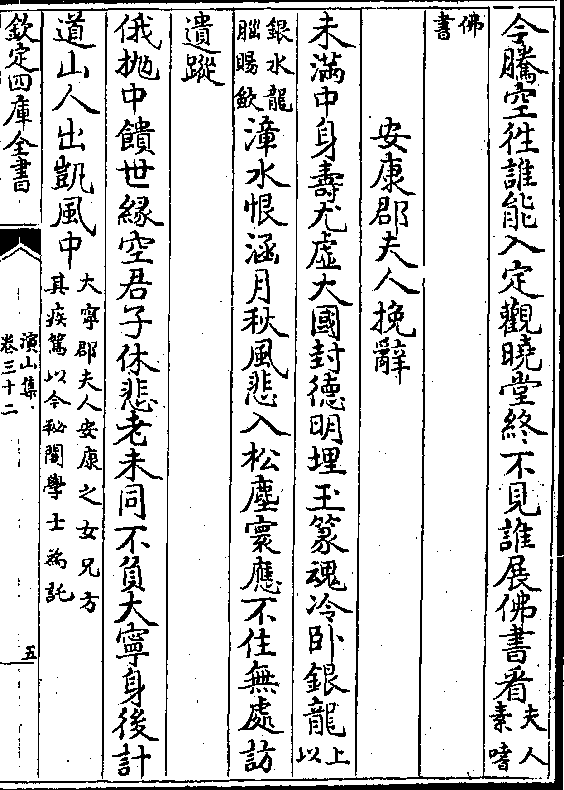 今騰空往誰能入定觀曉堂終不見誰展佛書看夫人素嗜
佛書
安康郡夫人挽辭
未滿中身壽尤虛大國封德明埋玉篆魂冷卧銀龍上以
銀水龍腦賜斂漳水恨涵月秋風悲入松塵寰應不住無處訪
遺蹤
俄抛中饋世緣空君子休悲老未同不負大寧身後計
道山人出凱風中大寧郡夫人安康之女兄方其疾篤以今秘閣學士為託
欽定四庫全書
演山集
卷三十二
五